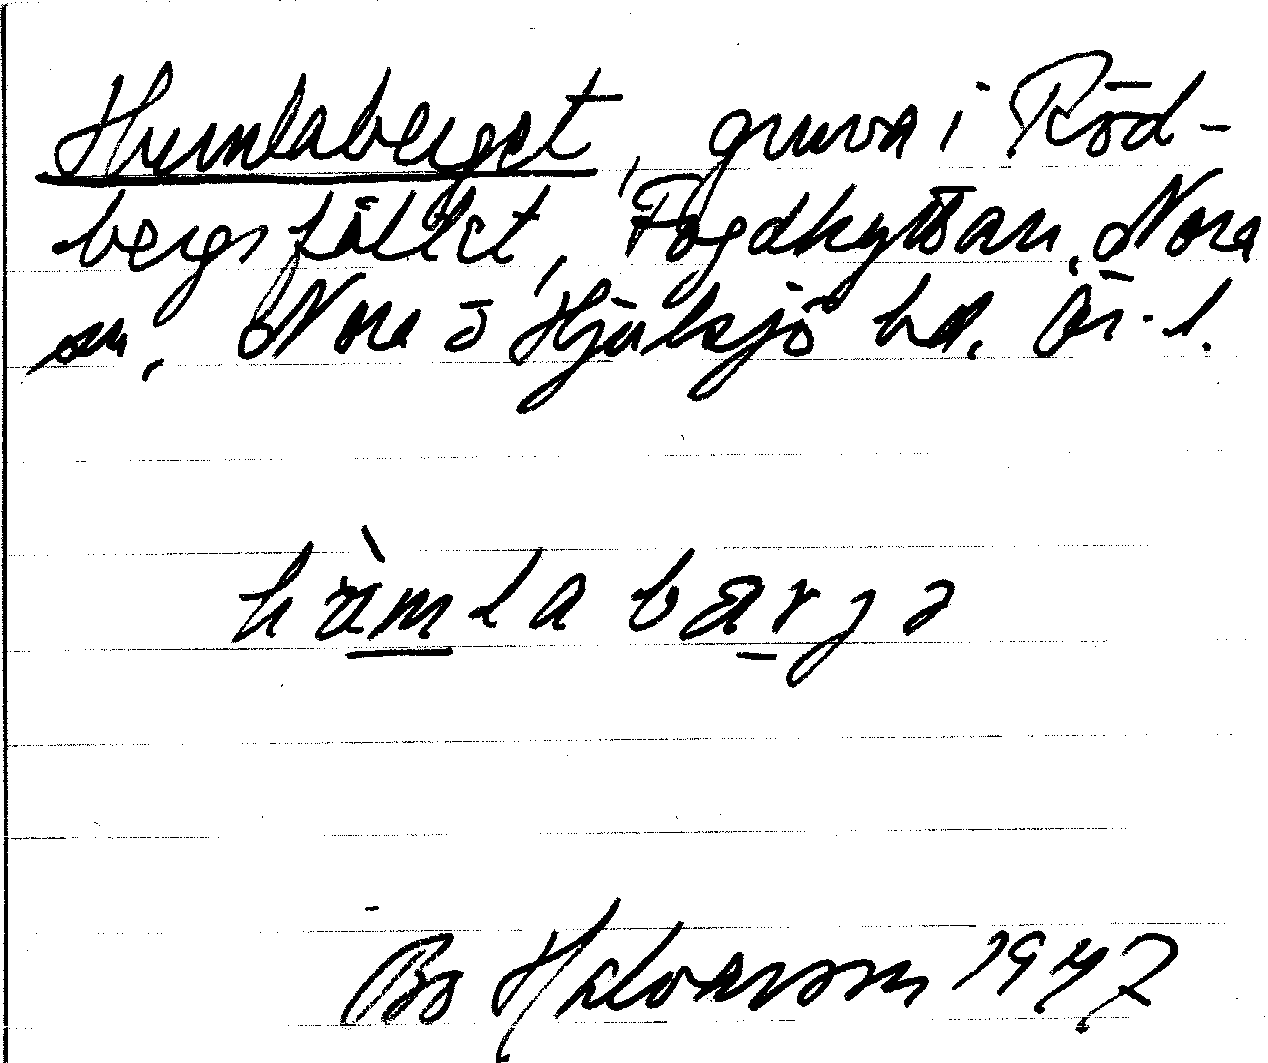 Humlaberget, gruva i Röd-
bergsfältet, Fogdhyttan, Nora
sn, Nora o Hjulsjö hd. Ör. l.
hùmlabærjə
Bo Halvarsson 1947